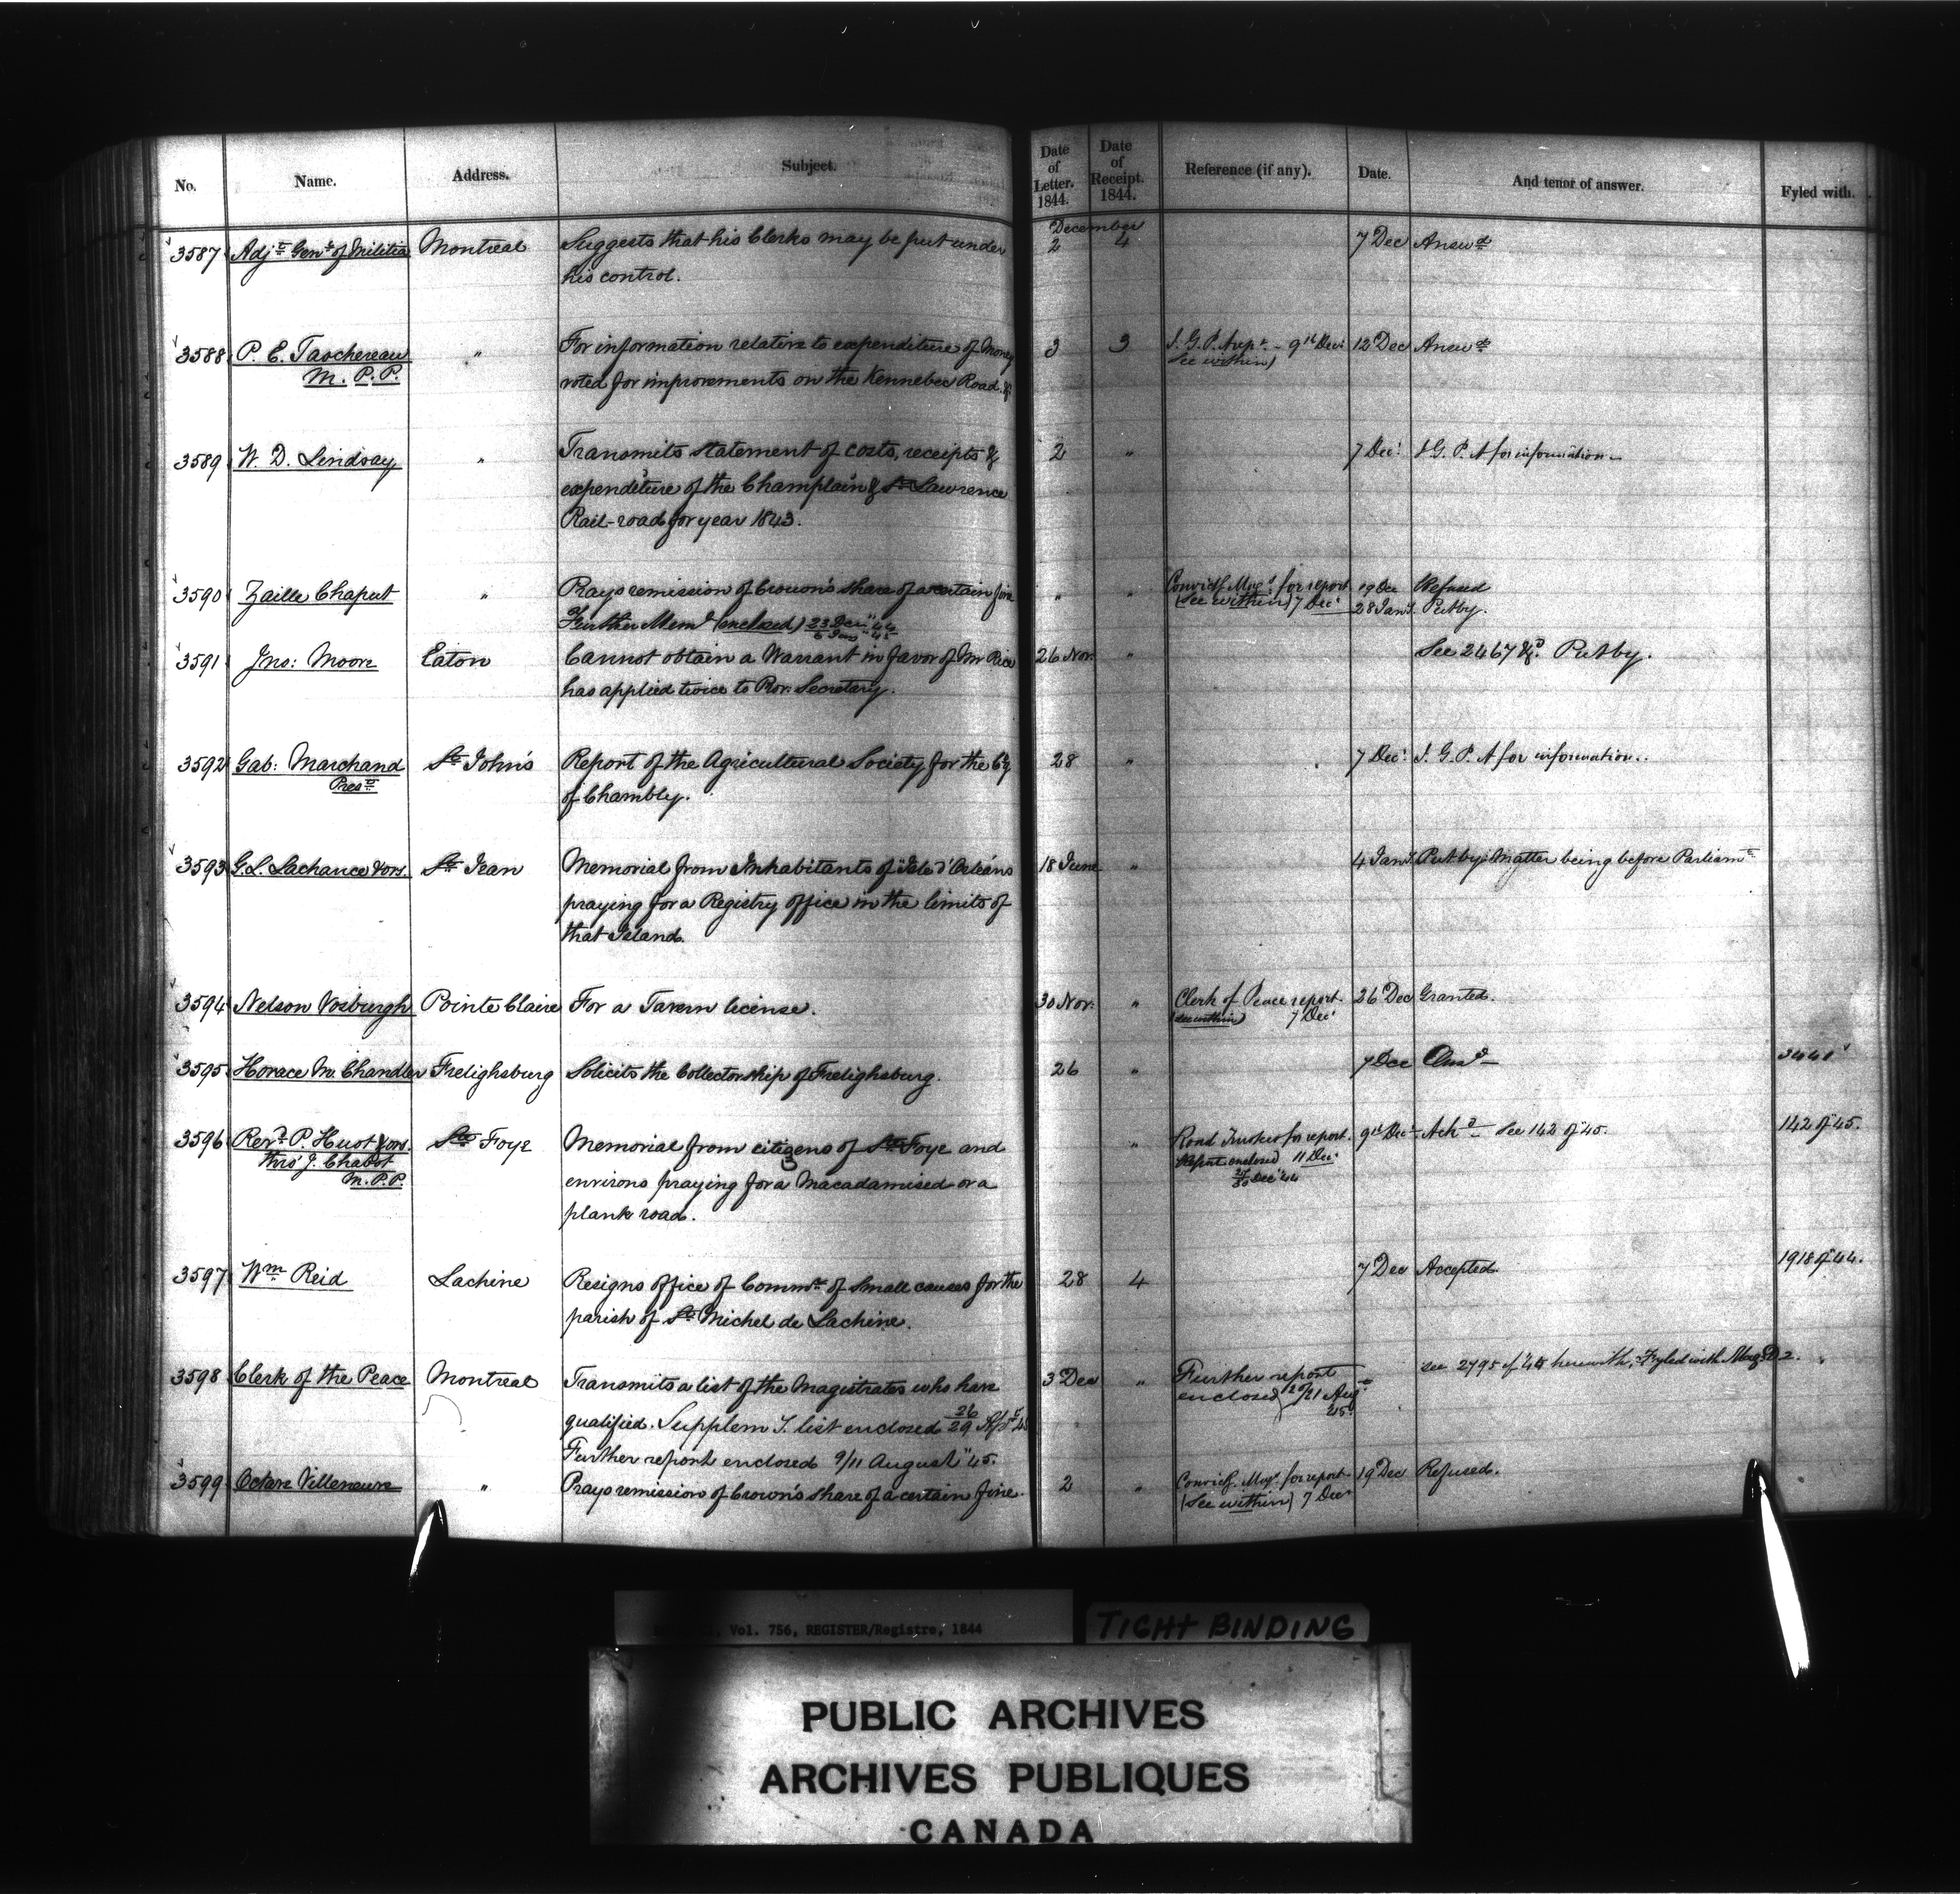 No. Name. Address. Subject. Date of Letter. 1844. Date of Receipt. 1844. Reference (if any). Date. And tenor of answer. Fyled with.
December
3587 Adjt Genl of Militia Montreal Suggests that his Clerks may be put under 2 4 7 Dec Answd
his control.
3588 P. E. Taschereau " For information relative to expenditure of Money 3 3 I. G. P. A rept - 9th Decr 12 Dec Answd
M. P. P. voted for improvements on the Kennebec Road. &c (See within)
3589 W. D. Lindsay " Transmits statement of costs, receipts & 2 " 7 Decr I. G. P. A for information
expenditure of the Champlain & St Lawrence
Rail-road for year 1843.
3590 Zaille Chaput " Prays remission of Crown's share of a certain fine " " Convictg Magt for report 19 Dec Refused
Further Meml (enclosed) 23 Decr "44 (See within) 7 Decr 28 Jany. Put by.
6 Jany "45
3591 Jno: Moore Eaton Cannot obtain a Warrant in favor of Mr Rice 26 Nov. " See 2467 &c. Put by.
has applied twice to Prov. Secretary.
3592 Gab: Marchand St John's Report of the Agricultural Society for the Cy 28 " 7 Decr I. G. P. A for information..
Prest of Chambly.
3593 G. L. Lachance & ors. St Jean Memorial from Inhabitants of "Isle d'Orleans 18 June " 4 Jany. Put by: Matter being before Parliamt
praying for a Registry office in the limits of
that Island.
3594 Nelson Vosburgh Pointe Claire For a Tavern license. 30 Nov. " Clerk of Peace report. 26 Dec Granted.
(see within) 7 Decr
3595 Horace M. Chandler Frelighsburg Solicits the Collectorship of Frelighsburg. 26 " 7 Dec Ansd 3441
3596 Revd P. Huot & ors. Ste Foye Memorial from citizens of Ste Foye and " Road Trustees for report. 9th Decr Ackd See 142 of "45. 142 of "45.
thro' J. Chabot environs praying for a Macadamised or a Report enclosed 11 Decr
M. P. P. plank road. 30 Decr "44
3597 Wm Reid Lachine Resigns office of Commr of Small causes for the 28 4 7 Dec Accepted. 1918 of "44.
parish of St Michel de Lachine.
3598 Clerk of the Peace Montreal Transmits a list of the Magistrates who have 3 Dec " Further report see 2795 of "45 herewith, Fyled with
qualified. Supplemy. list enclosed 26/29 enclosed 20/21 Augt 45.
Further report enclosed 9/11 August "45.
3599 Octave Villeneuve " Prays remission of Crown's share of a certain fine. 2 " Convictg. Magt. for report. 19 Dec Refused.
(See within) 7 Decr
Vol. 756, REGISTER/Registre, 1844
TIGHT BINDING
PUBLIC ARCHIVES
ARCHIVES PUBLIQUES
CANADA